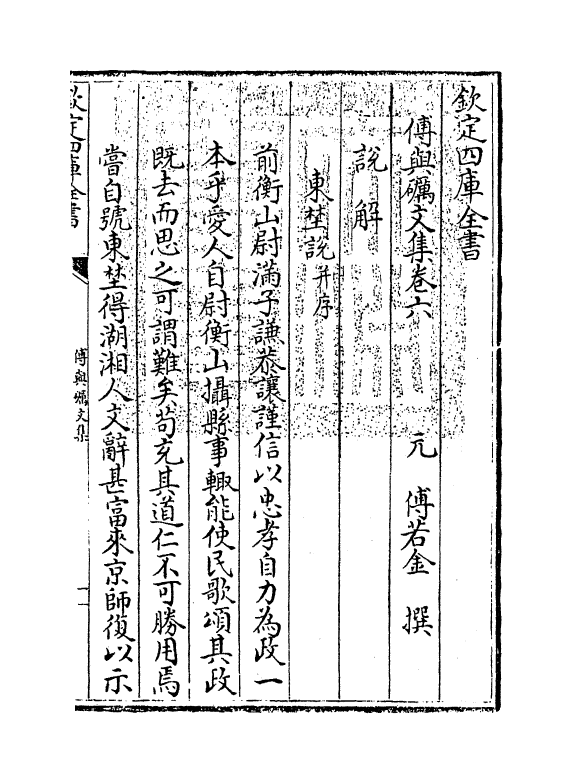 欽定四庫全書
傅與礪文集卷六　元　傅若金　撰
說解
東埜說并序
前衡山尉滿子謙恭讓謹信以忠孝自力為政一
本乎愛人自尉衡山攝縣事輙能使民歌頌其政
既去而思之可謂難矣苟充其道仁不可勝用焉
嘗自號東埜得湖湘人文辭甚富來京師復以示
欽定四庫全書
傅與礪文集